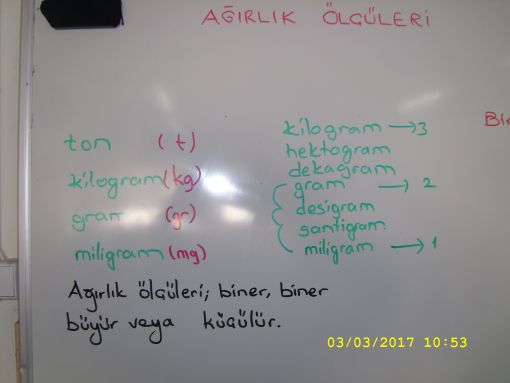 AĞIRLIK ÖLÇÜLERİ
ton (t)
kilogram (kg)
gram (gr)
miligram (mg)
kilogram → 3
hektogram
dekagram
gram → 2
desigram
santigram
miligram → 1
Bir
Ağırlık ölçüleri; biner, biner
büyür veya küçülür.
03/03/2017 10:53